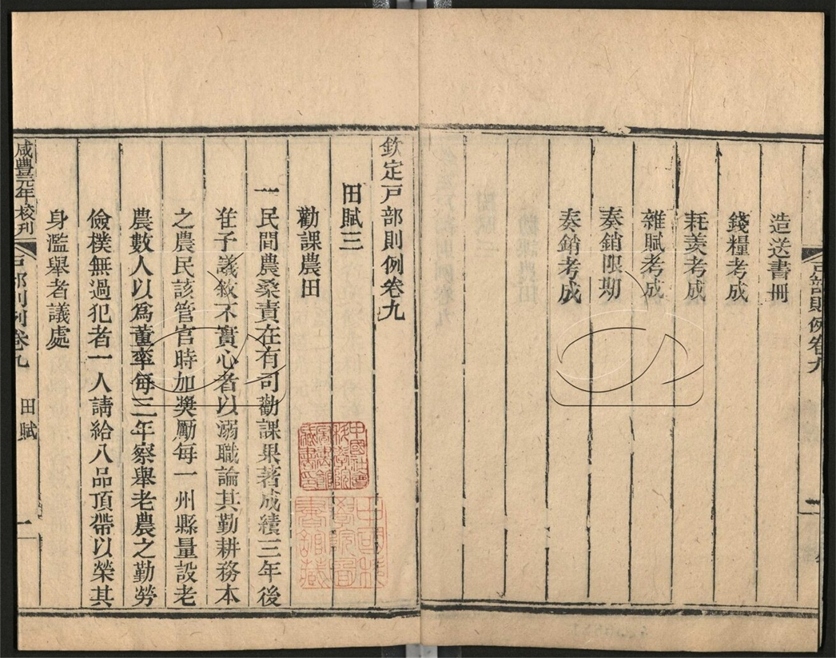 造送書冊
錢糧考成
耗羨考成
雜賦考成
奏銷限期
奏銷考成
戶部則例卷九
欽定戶部則例卷九
田賦三
勸課農田
一民間農桑責在有司勸課果著成績三年後
准予議敘不實心者以溺職論其勤耕務本
之農民該管官時加獎勵每一州縣量設老
農數人以爲董率每三年察舉老農之勤勞
儉樸無過犯者一人請給八品頂帶以榮其
身濫舉者議處
咸豐元年校刊
戶部則例卷九
田賦
一